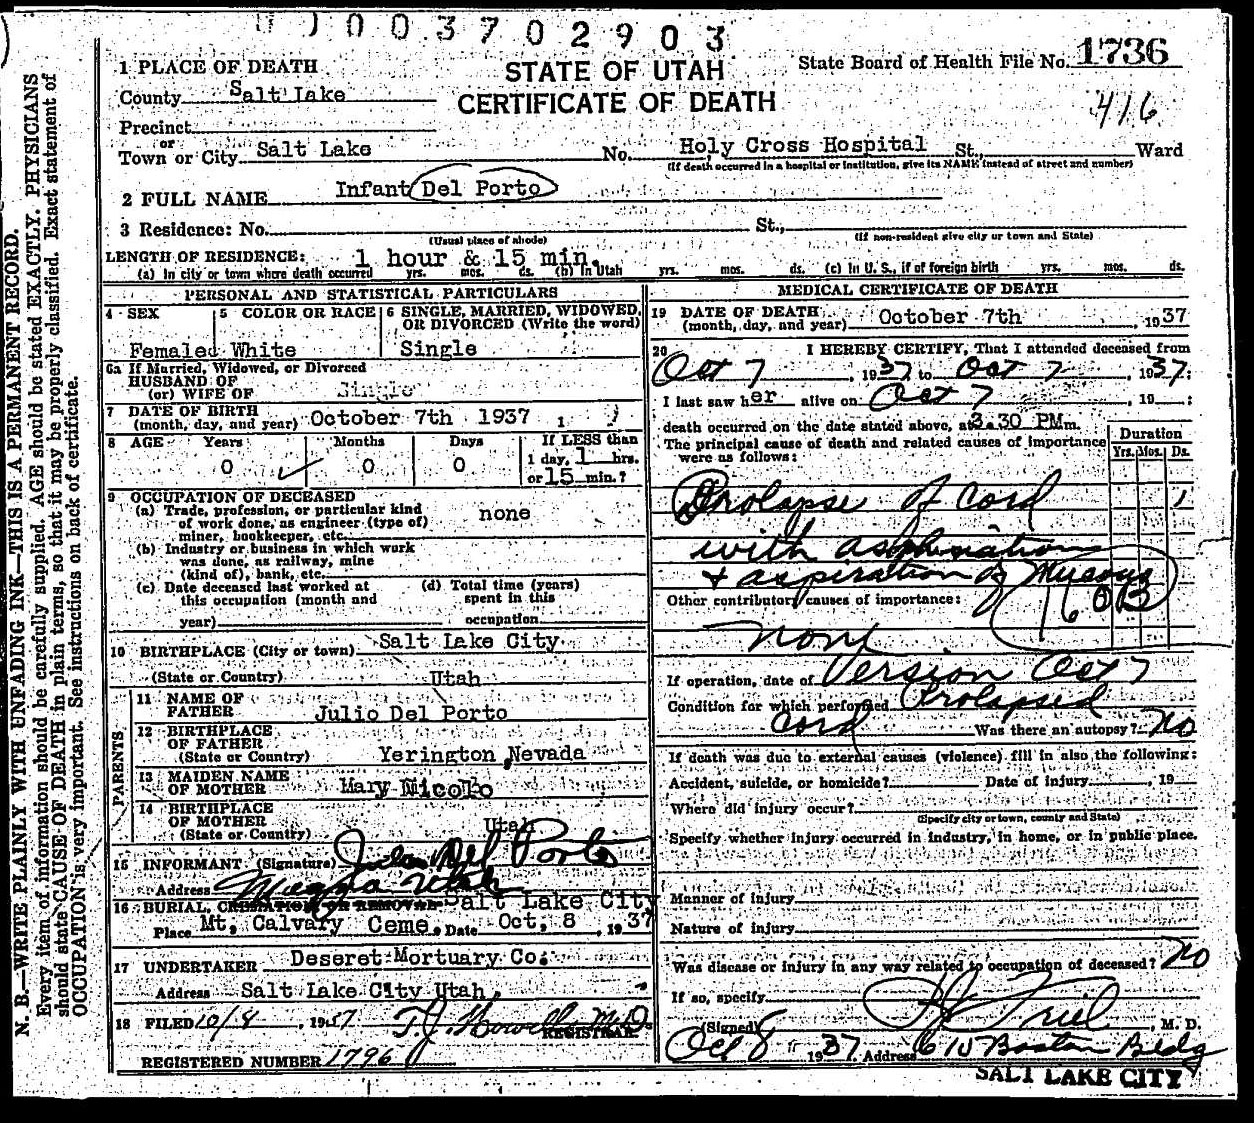 003702903
1 PLACE OF DEATH
STATE OF UTAH
State Board of Health File No. 1736
County Salt Lake
CERTIFICATE OF DEATH
416
Precinct
or
Town or City Salt Lake No. Holy Cross Hospital St., Ward
(If death occurred in a hospital or institution, give its NAME instead of street and number)
2 FULL NAME Infant Del Porto
3 Residence: No. St.,
(Usual place of abode) (If non-resident give city or town and State)
LENGTH OF RESIDENCE: 1 hour & 15 min.
(a) In city or town where death occurred yrs. mos. ds. (b) In Utah yrs. mos. ds. (c) In U. S., if of foreign birth yrs. mos. ds.
PERSONAL AND STATISTICAL PARTICULARS
4 SEX 5 COLOR OR RACE 6 SINGLE, MARRIED, WIDOWED, OR DIVORCED (Write the word)
Female White Single
6a If Married, Widowed, or Divorced
HUSBAND OF
(or) WIFE OF Single
7 DATE OF BIRTH
(month, day, and year) October 7th 1937
8 AGE Years Months Days If LESS than
0 0 0 1 day, 1 hrs.
or 15 min.?
9 OCCUPATION OF DECEASED
(a) Trade, profession, or particular kind
of work done, as engineer (type of)
miner, bookkeeper, etc. none
(b) Industry or business in which work
was done, as railway, mine
(kind of), bank, etc.
(c) Date deceased last worked at
this occupation (month and
year)
(d) Total time (years)
spent in this
occupation
10 BIRTHPLACE (City or town) Salt Lake City
(State or Country) Utah
PARENTS
11 NAME OF
FATHER Julio Del Porto
12 BIRTHPLACE
OF FATHER
(State or Country) Yerington, Nevada
13 MAIDEN NAME
OF MOTHER Mary Nicolo
14 BIRTHPLACE
OF MOTHER
(State or Country) Utah
15 INFORMANT (Signature) Del Porto
Address Magna Utah
16 BURIAL, CREMATION OR REMOVAL Salt Lake City
Place Mt. Calvary Ceme. Date Oct. 8, 1937
17 UNDERTAKER Deseret Mortuary Co.
Address Salt Lake City Utah.
18 FILED 10/8, 1937 T. J. Howells M.D.
REGISTRAR
REGISTERED NUMBER 1796
MEDICAL CERTIFICATE OF DEATH
19 DATE OF DEATH
(month, day, and year) October 7th, 1937
20 I HEREBY CERTIFY, That I attended deceased from
Oct 7, 1937 to Oct 7, 1937;
I last saw her alive on Oct 7, 19 ;
death occurred on the date stated above, at 3.30 PM m.
The principal cause of death and related causes of importance
were as follows:
Duration
Yrs. Mos. Ds.
Prolapse of cord 1
with asphyxiation
& aspiration of Mucous
Other contributory causes of importance:
160B
None
If operation, date of Version Oct 7
Condition for which performed Prolapsed
Cord Was there an autopsy? No
If death was due to external causes (violence) fill in also the following:
Accident, suicide, or homicide? Date of injury , 19
Where did injury occur?
(Specify city or town, county and State)
Specify whether injury occurred in industry, in home, or in public place.
Manner of injury
Nature of injury
Was disease or injury in any way related to occupation of deceased? No
If so, specify
(Signed) , M. D.
Oct 8 1937 Address 610 Boston Bldg
SALT LAKE CITY
N. B.—WRITE PLAINLY WITH UNFADING INK—THIS IS A PERMANENT RECORD.
Every item of information should be carefully supplied. AGE should be stated EXACTLY. PHYSICIANS
should state CAUSE OF DEATH in plain terms, so that it may be properly classified. Exact statement of
OCCUPATION is very important. See instructions on back of certificate.